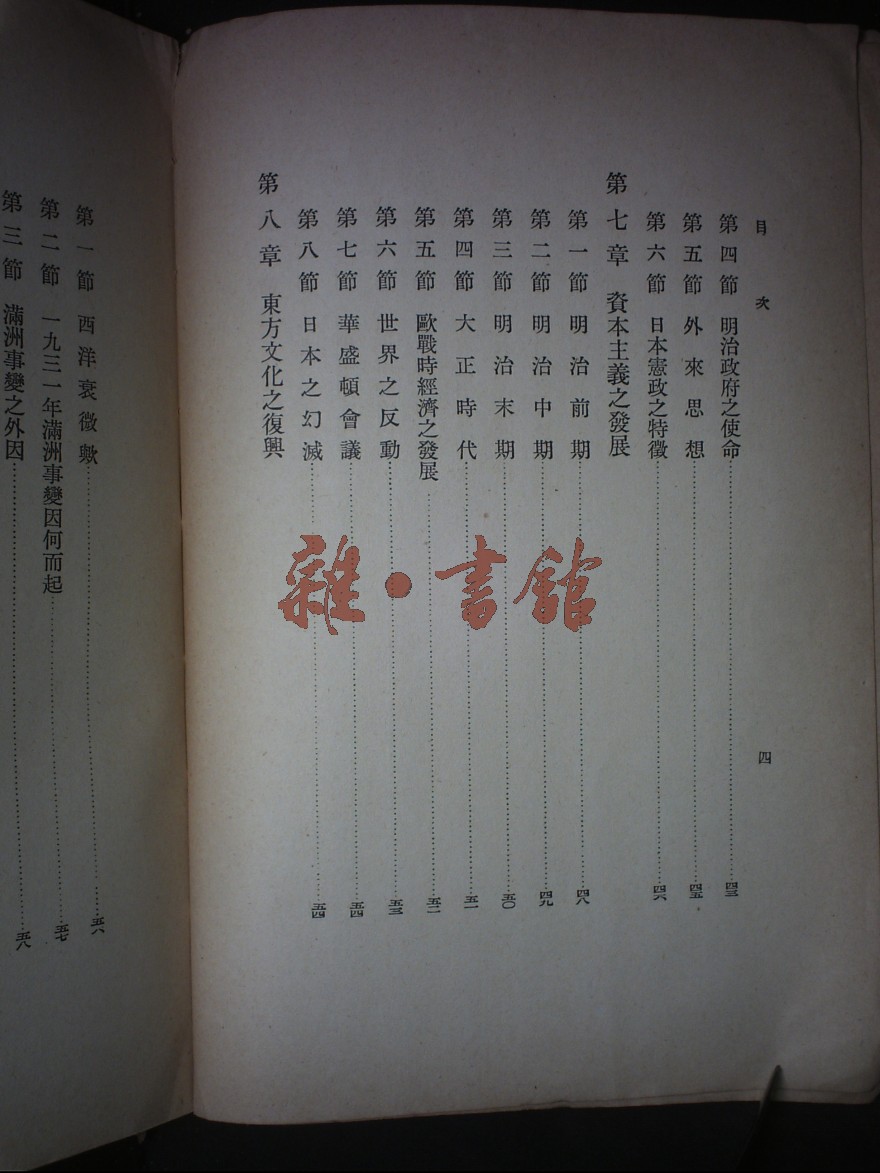 目次
四
第四節 明治政府之使命 四三
第五節 外來思想 四五
第六節 日本憲政之特徵 四六
第七章 資本主義之發展
第一節 明治前期 四八
第二節 明治中期 四九
第三節 明治末期 五〇
第四節 大正時代 五一
第五節 歐戰時經濟之發展 五二
第六節 世界之反動 五三
第七節 華盛頓會議 五四
第八節 日本之幻滅 五四
第八章 東方文化之復興
第一節 西洋衰微歟 五六
第二節 一九三一年滿洲事變因何而起 五七
第三節 滿洲事變之外因 五八
雜·書館